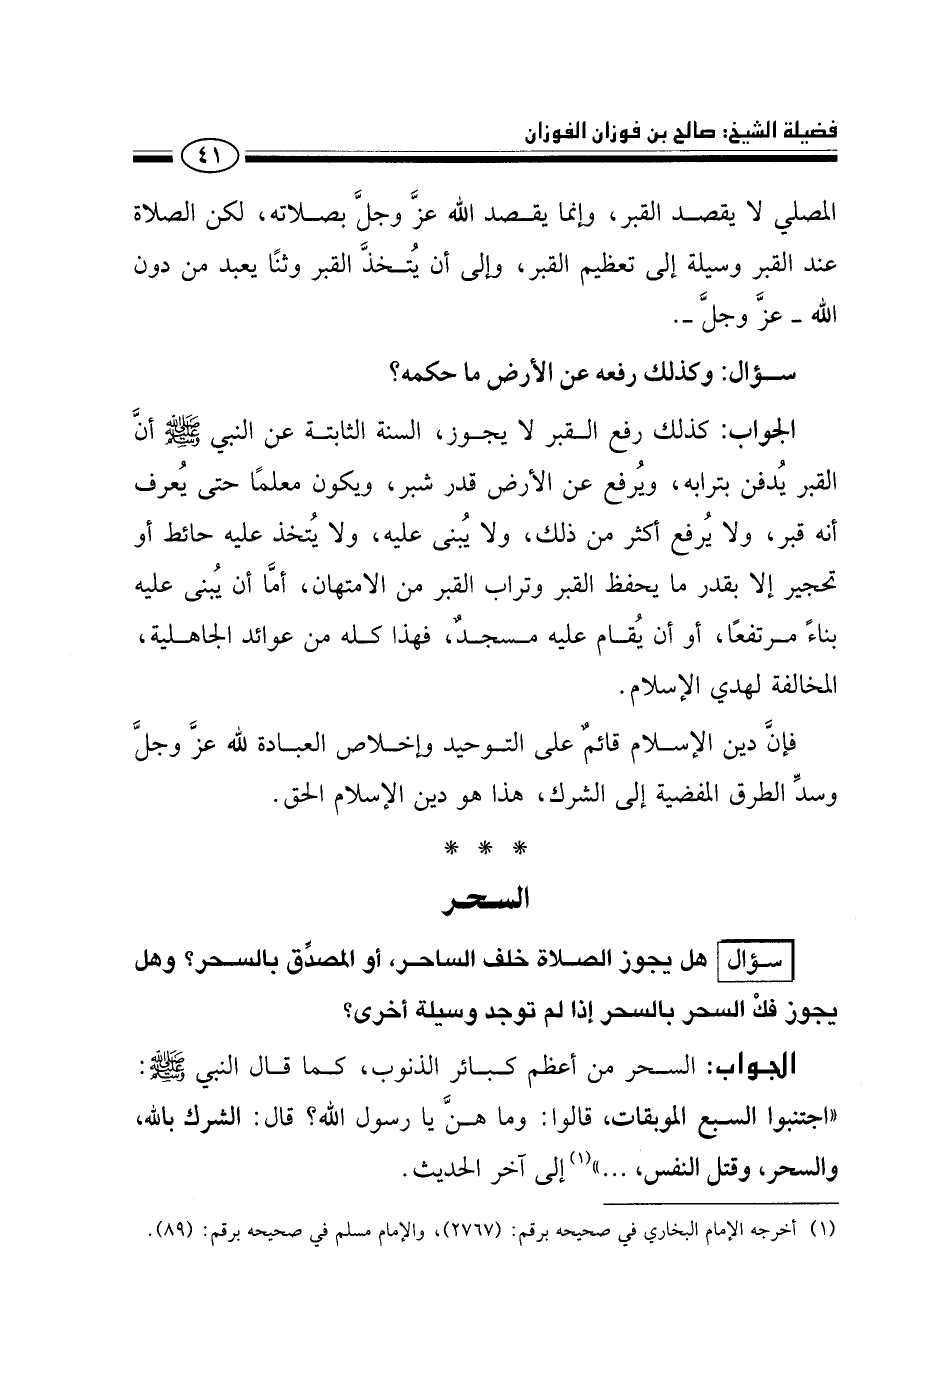 فضيلة الشيخ: صالح بن فوزان الفوزان
٤١
المصلي لا يقصد القبر، وإنما يقصد الله عزَّ وجلَّ بصلاته، لكن الصلاة
عند القبر وسيلة إلى تعظيم القبر، وإلى أن يُتخذَّ القبر وثنًا يعبد من دون
الله ـ عزَّ وجلَّ ـ.
سؤال: وكذلك رفعه عن الأرض ما حكمه؟
الجواب: كذلك رفع القبر لا يجوز، السنة الثابتة عن النبي ﷺ أنَّ
القبر يُدفن بترابه، ويُرفع عن الأرض قدر شبر، ويكون معلمًا حتى يُعرف
أنه قبر، ولا يُرفع أكثر من ذلك، ولا يُبنى عليه، ولا يُتخذ عليه حائط أو
تحجير إلا بقدر ما يحفظ القبر وتراب القبر من الامتهان، أمَّا أن يُبنى عليه
بناءً مرتفعًا، أو أن يُقام عليه مسجدٌ، فهذا كله من عوائد الجاهلية،
المخالفة لهدي الإسلام.
فإنَّ دين الإسلام قائمٌ على التوحيد وإخلاص العبادة لله عزَّ وجلَّ
وسدِّ الطرق المفضية إلى الشرك، هذا هو دين الإسلام الحق.
* * *
السحر
سؤال هل يجوز الصلاة خلف الساحر، أو المصدِّق بالسحر؟ وهل
يجوز فكْ السحر بالسحر إذا لم توجد وسيلة أخرى؟
الجواب: السحر من أعظم كبائر الذنوب، كما قال النبي ﷺ:
«اجتنبوا السبع الموبقات، قالوا: وما هنَّ يا رسول الله؟ قال: الشرك بالله،
والسحر، وقتل النفس، ...»(١) إلى آخر الحديث.
(١) أخرجه الإمام البخاري في صحيحه برقم: (٢٧٦٧)، والإمام مسلم في صحيحه برقم: (٨٩).